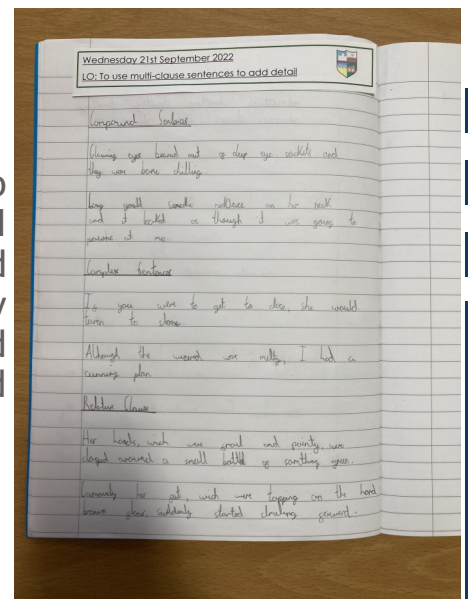 Wednesday 21st September 2022
LO: To use multi-clause sentences to add detail
Compound Sentences
eyes beamed out of deep eye sockets and
they were bone chilling
small necklace on her neck
and it looked as though it was going to
at me
Complex Sentences
If you were to get to close, she would
turn to stone.
Although the was , I had a
cunning plan
Relative Clause
Her hands, wich were small and pointy, were
around a small bottle of somthing green.
her , wich were tapping on the hard
brown , suddenly started forward.